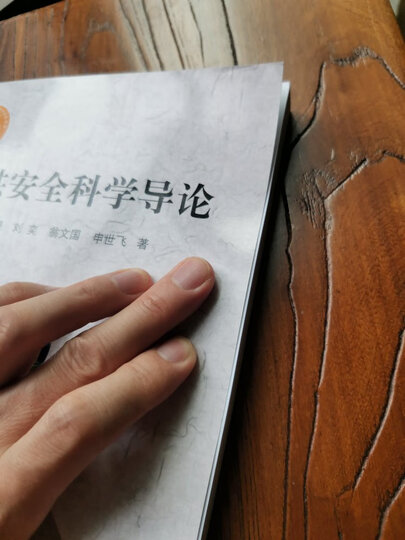 安全科学导论
刘奕 翁文国 申世飞 著